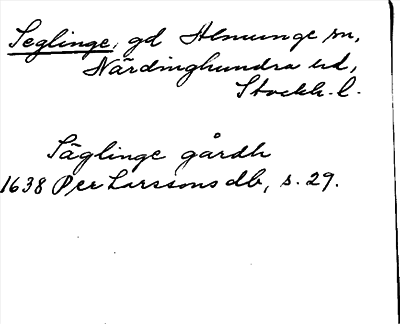 Seglinge, gd Almunge sn,
Närdinghundra hd,
Stockh. l.
Säglinge gårdh
1638 Per Larssons db, s. 29.